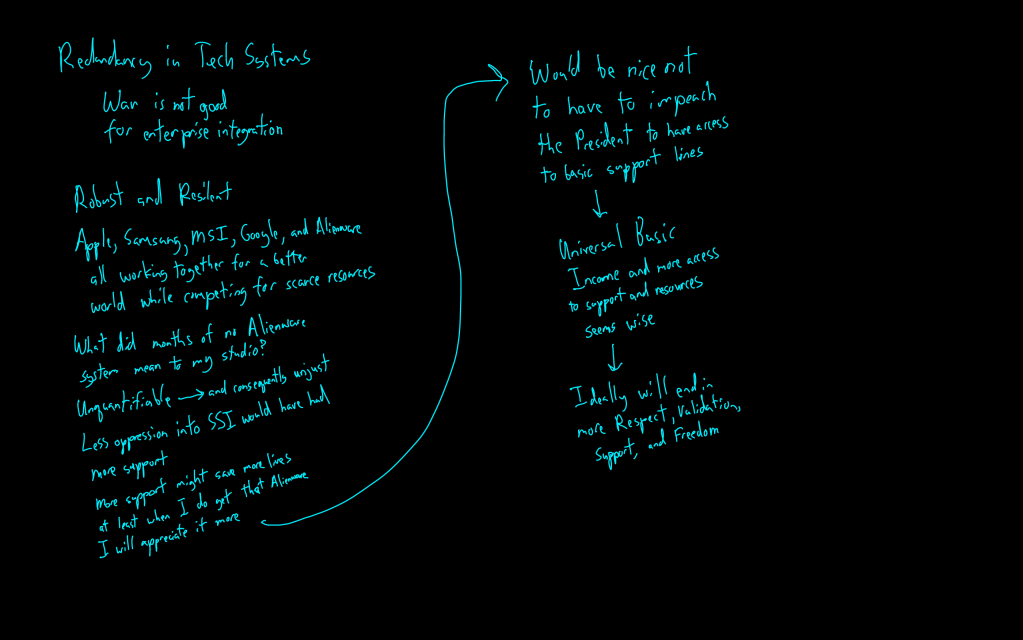 Redundancy in Tech Systems
War is not good
for enterprise integration
Robust and Resilent
Apple, Samsung, MSI, Google, and Alienware
all working together for a better
world while competing for scarce resources
What did months of no Alienware
system mean to my studio?
Unquantifiable → and consequently unjust
Less oppression into SSI would have had
more support
more support might save more lives
at least when I do get that Alienware
I will appreciate it more
Would be nice not
to have to impeach
the President to have access
to basic support lines
Universal Basic
Income and more access
to support and resources
seems wise
Ideally will end in
more Respect, Validation,
Support, and Freedom